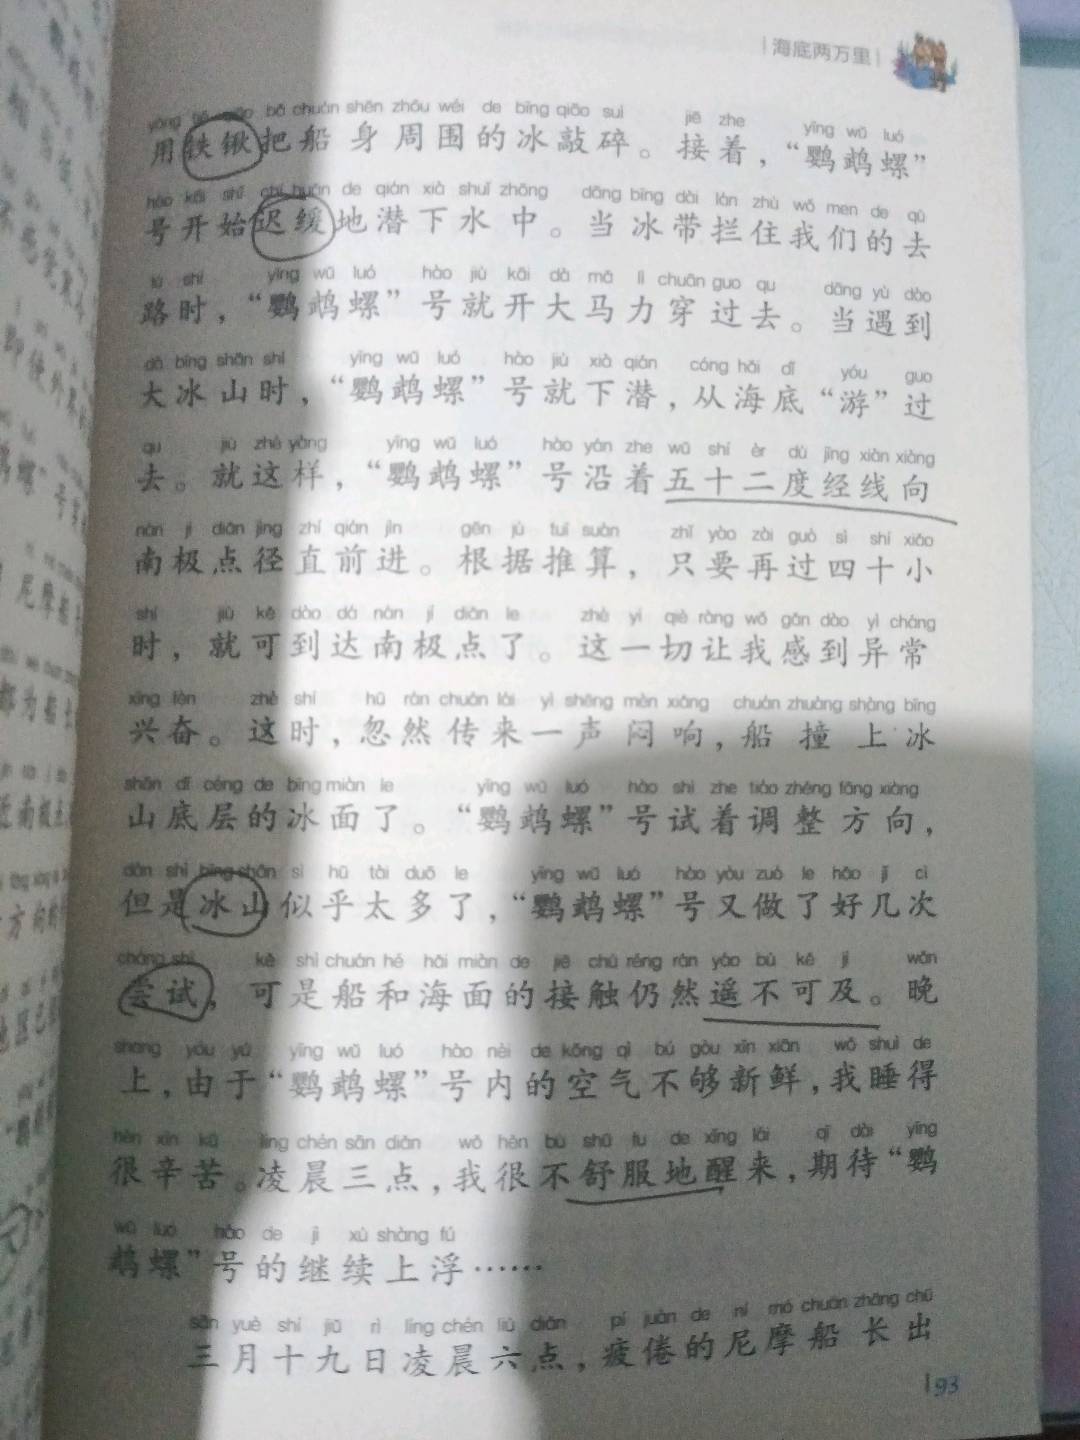 海底两万里
yòng tiě qiāo bǎ chuán shēn zhōu wéi de bīng qiāo suì jiē zhe yīng wǔ luó
用铁锹把船身周围的冰敲碎。接着，“鹦鹉螺”
hào kāi shǐ chí huǎn de qián xià shuǐ zhōng dāng bīng dài lán zhù wǒ men de qù
号开始迟缓地潜下水中。当冰带拦住我们的去
lù shí yīng wǔ luó hào jiù kāi dà mǎ lì chuān guo qu dāng yù dào
路时，“鹦鹉螺”号就开大马力穿过去。当遇到
dà bīng shān shí yīng wǔ luó hào jiù xià qián cóng hǎi dǐ yóu guo
大冰山时，“鹦鹉螺”号就下潜，从海底“游”过
qu jiù zhè yàng yīng wǔ luó hào yán zhe wǔ shí èr dù jīng xiàn xiàng
去。就这样，“鹦鹉螺”号沿着五十二度经线向
nán jí diǎn jìng zhí qián jìn gēn jù tuī suàn zhǐ yào zài guò sì shí xiǎo
南极点径直前进。根据推算，只要再过四十小
shí jiù kě dào dá nán jí diǎn le zhè yí qiè ràng wǒ gǎn dào yì cháng
时，就可到达南极点了。这一切让我感到异常
xīng fèn zhè shí hū rán chuán lái yì shēng mèn xiǎng chuán zhuàng shàng bīng
兴奋。这时，忽然传来一声闷响，船撞上冰
shān dǐ céng de bīng miàn le yīng wǔ luó hào shì zhe tiáo zhěng fāng xiàng
山底层的冰面了。“鹦鹉螺”号试着调整方向，
dàn shì bīng shān sì hū tài duō le yīng wǔ luó hào yòu zuò le hǎo jǐ cì
但是冰山似乎太多了，“鹦鹉螺”号又做了好几次
cháng shì kě shì chuán hé hǎi miàn de jiē chù réng rán yáo bù kě jí wǎn
尝试，可是船和海面的接触仍然遥不可及。晚
shang yóu yú yīng wǔ luó hào nèi de kōng qì bú gòu xīn xiān wǒ shuì de
上，由于“鹦鹉螺”号内的空气不够新鲜，我睡得
hěn xīn kǔ líng chén sān diǎn wǒ hěn bù shū fu de xǐng lái qī dài yīng
很辛苦。凌晨三点，我很不舒服地醒来，期待“鹦
wǔ luó hào de jì xù shàng fú
鹉螺”号的继续上浮……
sān yuè shí jiǔ rì líng chén liù diǎn pí juàn de ní mó chuán zhǎng chū
三月十九日凌晨六点，疲倦的尼摩船长出
93